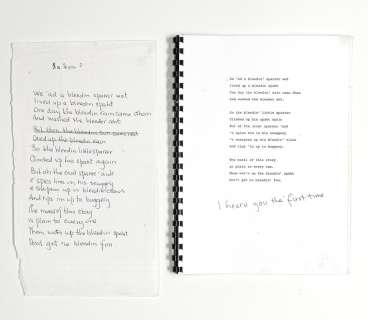 We 'ad a bleedin sparer wot
lived up a bleedin spaht
One day the bleedin rain came dhan
And washed the bleeder aht
But then the bleedin sun came aht
Dried up the bleedin rain
So the bleedin little sparer
Climbed up the spaht again
But oh the cruel sparer 'awk
'e spies 'im in his snuggery
'e sharpens up 'is bleedin claws
And rips 'im up to buggery
The moral of this story
is plain to everyone
Them wot's up the bleedin spaht
Dont get no bleedin fun
We 'ad a bleedin' sparrer wot
lived up a bleedin spaht
One day the bleedin' rain came dhan
And washed the bleeder aht.
So the bleedin' little sparrer
Climbed up the spaht again
But oh the cruel sparrer 'awk
'e spies 'im in his snuggery.
'e sharpens up his bleedin' claws
And rips 'im up to buggery.
The moral of this story
is plain to every one.
Them wot's up the bleedin' spaht
Don't get no bleedin' fun.
I heard you the first time